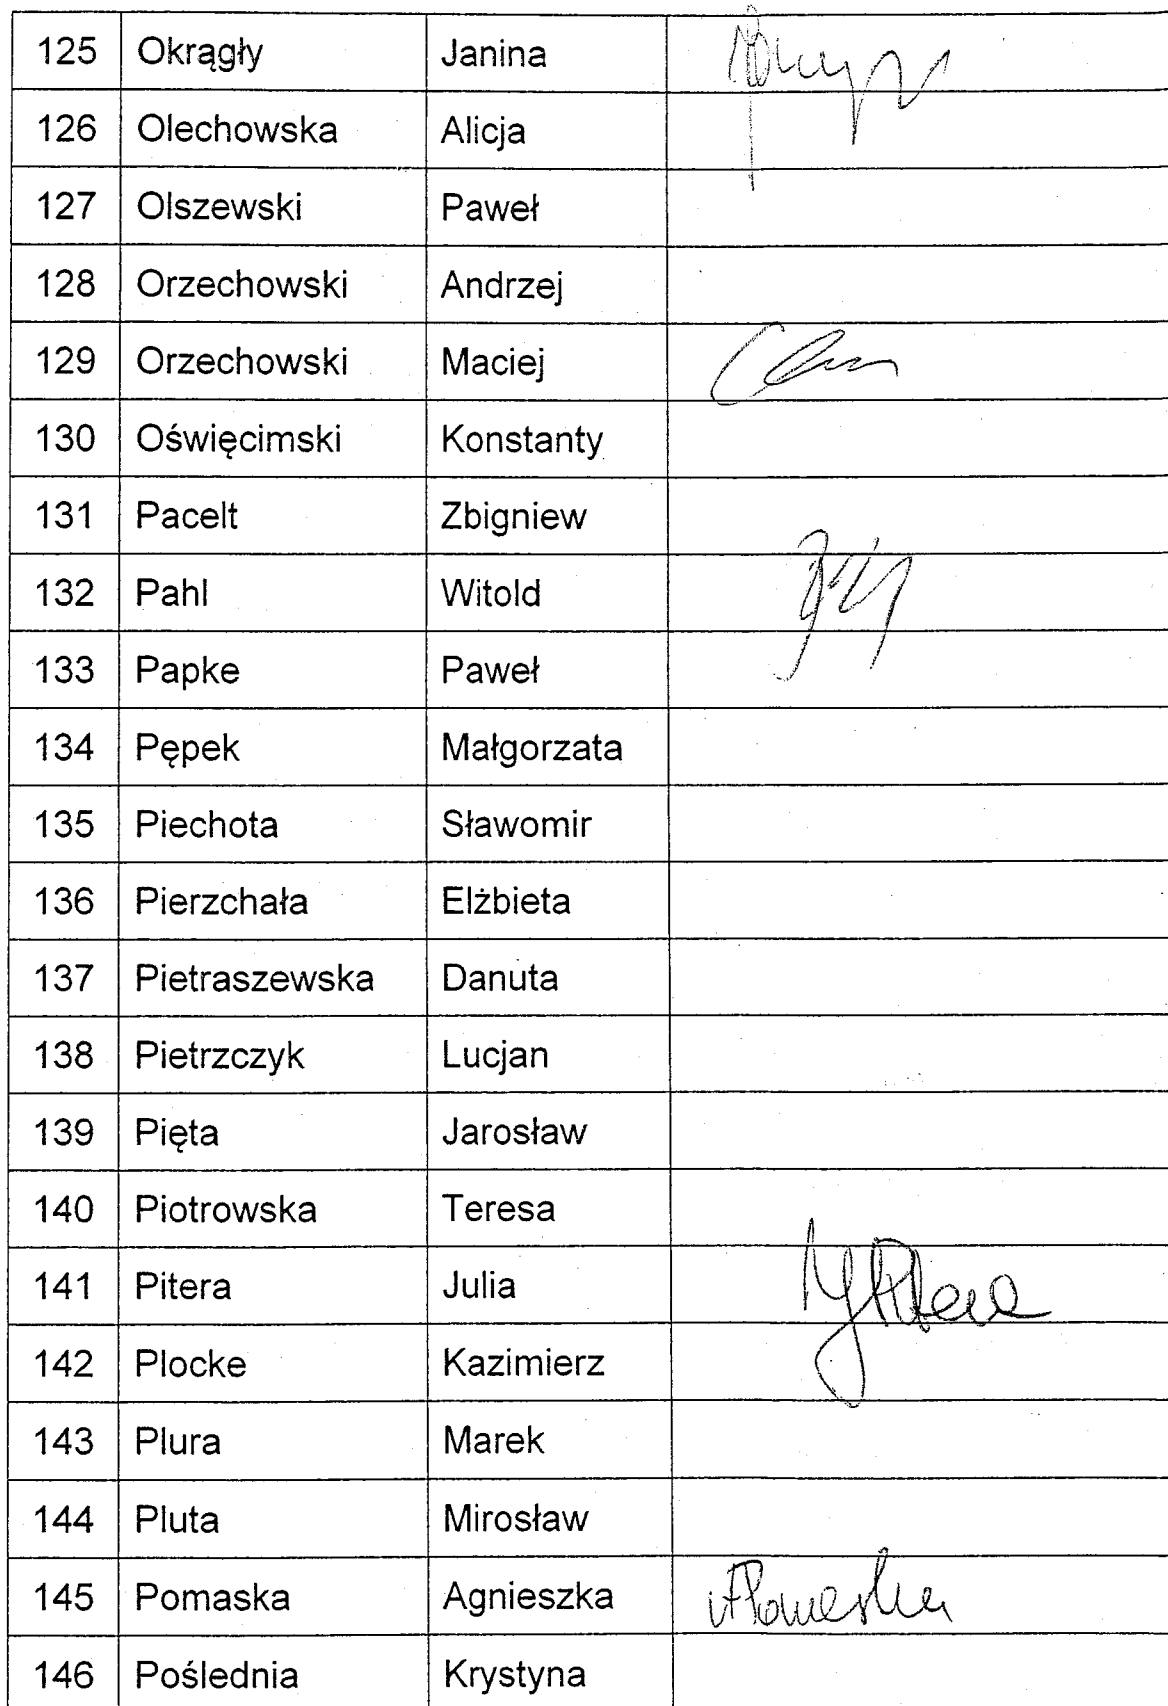 125 Okrągły Janina
126 Olechowska Alicja
127 Olszewski Paweł
128 Orzechowski Andrzej
129 Orzechowski Maciej
130 Oświęcimski Konstanty
131 Pacelt Zbigniew
132 Pahl Witold
133 Papke Paweł
134 Pępek Małgorzata
135 Piechota Sławomir
136 Pierzchała Elżbieta
137 Pietraszewska Danuta
138 Pietrzczyk Lucjan
139 Pięta Jarosław
140 Piotrowska Teresa
141 Pitera Julia
142 Plocke Kazimierz
143 Plura Marek
144 Pluta Mirosław
145 Pomaska Agnieszka APomaska
146 Poślednia Krystyna